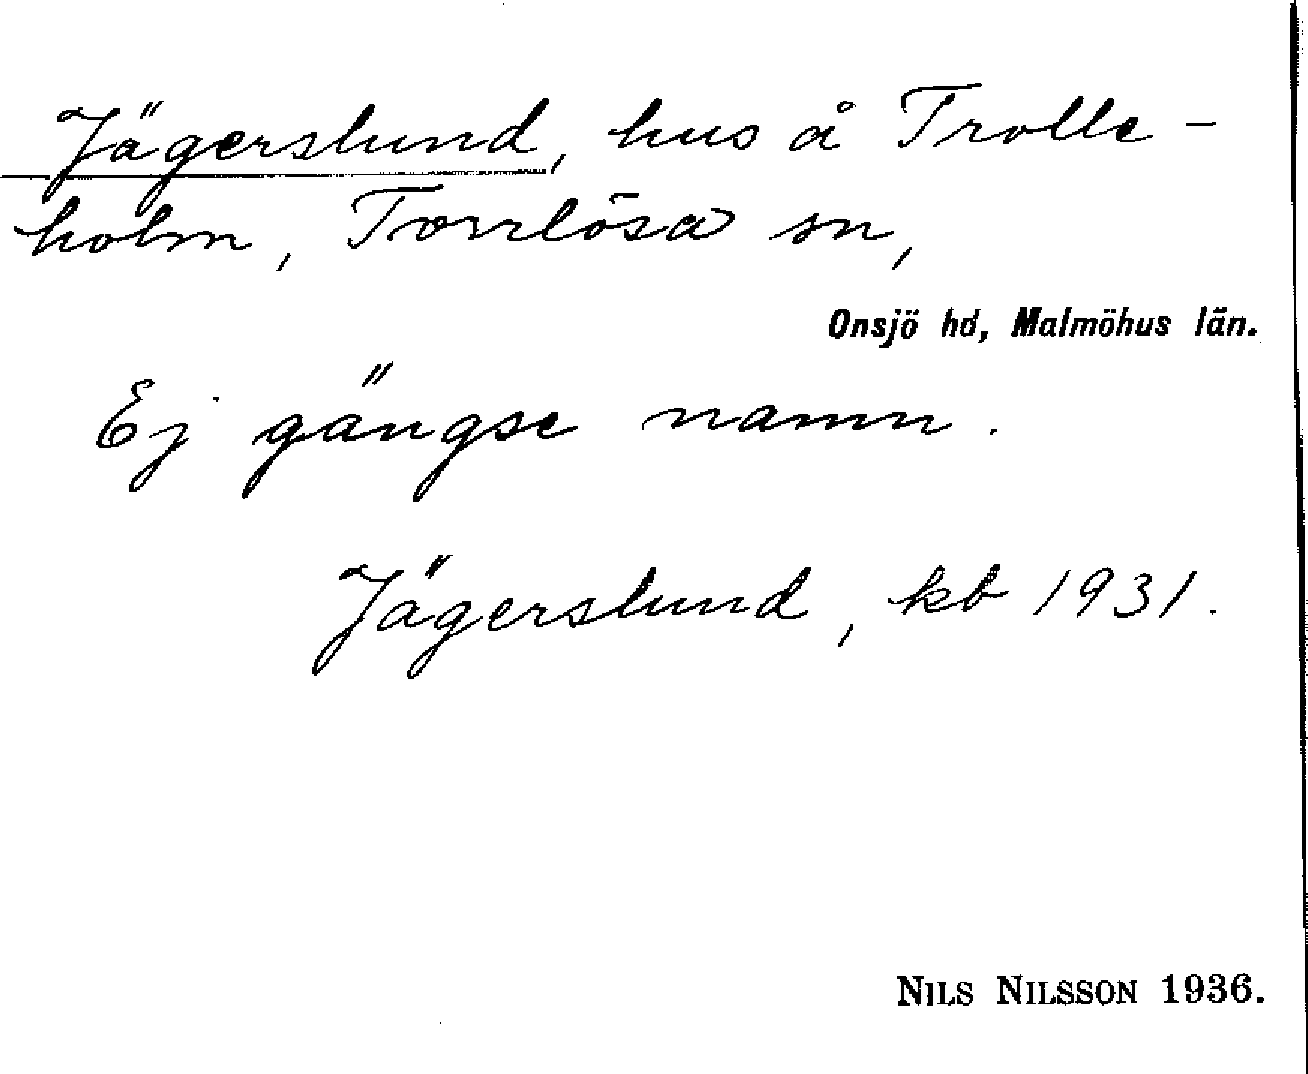 Jägerslund, hus å Trolle-
holm, Torrlösa sn,
Onsjö hd, Malmöhus län.
Ej gängse namn.
Jägerslund, kb 1931.
NILS NILSSON 1936.